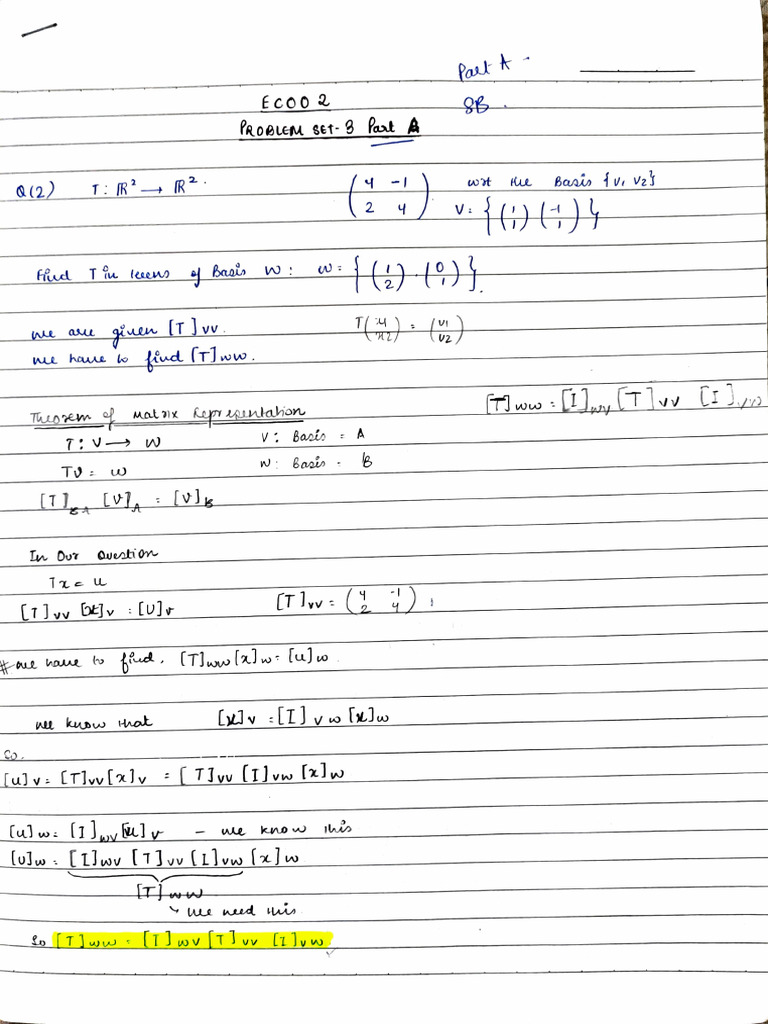 Part A -
SB.
EC002
PROBLEM SET-3 Part A
Q(2) T: ℝ² → ℝ². (4 -1 / 2 4) wrt the Basis {v1 v2}
V: {(1 / 1) (-1 / 1)}
Find T in terms of Basis W: W= {(1 / 2) . (0 / 1)}.
we are given [T]vv. T( / x2) = (v1 / v2)
we have to find [T]ww.
[T]ww = [I]wv [T]vv [I]vw
Theorem of Matrix Representation
T: V → W V: Basis = A
TV = W W: Basis = B
[T]BA [V]A = [V]B
In Our Question
Tx = u
[T]vv [x]v = [U]v [T]vv = (4 -1 / 2 4)
# we have to find. [T]ww [x]w = [u]w
we know that [x]v = [I]vw [x]w
So.
[u]v = [T]vv [x]v = [T]vv [I]vw [x]w
[u]w = [I]wv [u]v - we know this
[U]w = [I]wv [T]vv [I]vw [x]w
[T]ww
we need this.
So [T]ww = [I]wv [T]vv [I]vw